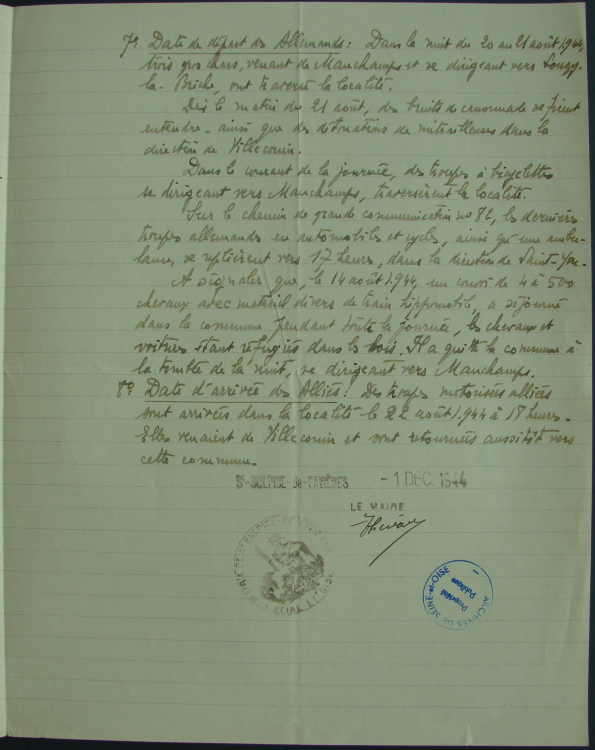 7º Date de départ des Allemands : Dans la nuit du 20 au 21 août 1944,
trois gros chars, venant de Mauchamps et se dirigeant vers Souzy-
la-Briche, ont traversé la localité.
Dès le matin du 21 août, des bruits de canonnade se firent
entendre - ainsi que des détonations de mitrailleuses dans la
direction de Villeconin.
Dans le courant de la journée, des troupes à bicyclettes
se dirigeant vers Mauchamps, traversèrent la localité.
Sur le chemin de grande communication no 82, les dernières
troupes allemandes en automobiles et cycles, ainsi qu'une ambu-
lance, se replièrent vers 17 heures, dans la direction de Saint-Yon.
A signaler que, le 14 août 1944, un convoi de 4 à 500
chevaux avec matériel divers de train hippomobile, a séjourné
dans la commune pendant toute la journée, les chevaux et
voitures étant réfugiés dans les bois. Il a quitté la commune à
la tombée de la nuit, se dirigeant vers Mauchamps.
8º Date d'arrivée des Alliés : Des troupes motorisées alliées
sont arrivées dans la localité le 22 août 1944 à 18 heures.
Elles venaient de Villeconin et sont retournées aussitôt vers
cette commune.
St-SULPICE-de-FAVIÈRES - 1 DEC. 1944
LE MAIRE
ARCHIVES DE SEINE-et-OISE
Propriété
Publique